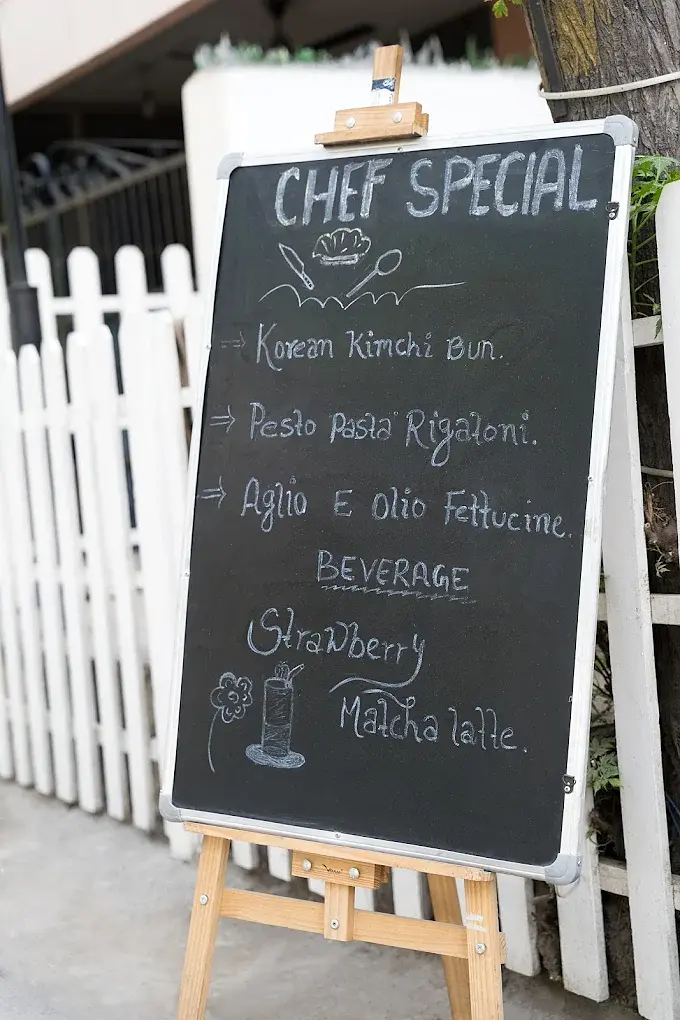 CHEF SPECIAL
⇒ Korean Kimchi Bun.
⇒ Pesto Pasta Rigatoni.
⇒ Aglio E Olio Fettucine.
BEVERAGE
Strawberry
Matcha latte.